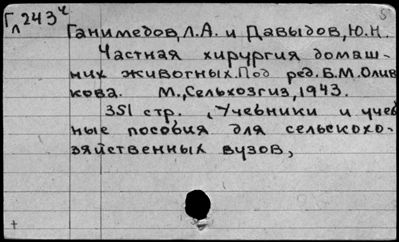 Гл243ч
Ганимедов, Л.А. и Давыдов, Ю.Н.
Частная хирургия домаш-
них животных. Под ред. Б.М. Олив
кова. М., Сельхозгиз, 1943.
351 стр. (Учебники и учеб
ные пособия для сельскохо-
зяйственных вузов,